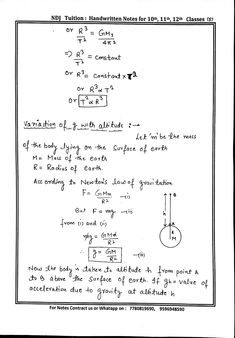 NDJ Tuition : Handwritten Notes for 10th, 11th, 12th Classes
or R³/T² = GMs/4π²
⇒ R³/T² = constant
or R³ = constant × T²
or R³ ∝ T²
or T² ∝ R³
Variation of g with altitude : →
Let 'm' be the mass
of the body lying on the surface of earth
M = Mass of the earth
R = Radius of earth.
According to Newton's law of gravitation
F = GMm/R² —(i)
But F = mg —(ii)
from (i) and (ii)
mg = GMm/R²
∴ g = GM/R² —(iii)
B
h
A
R
M
Now the body is taken to altitude h from point A
to B above the surface of earth. If gh = value of
acceleration due to gravity at altitude h
For Notes Contact us or Whatapp on : 7780819690, 9596948590